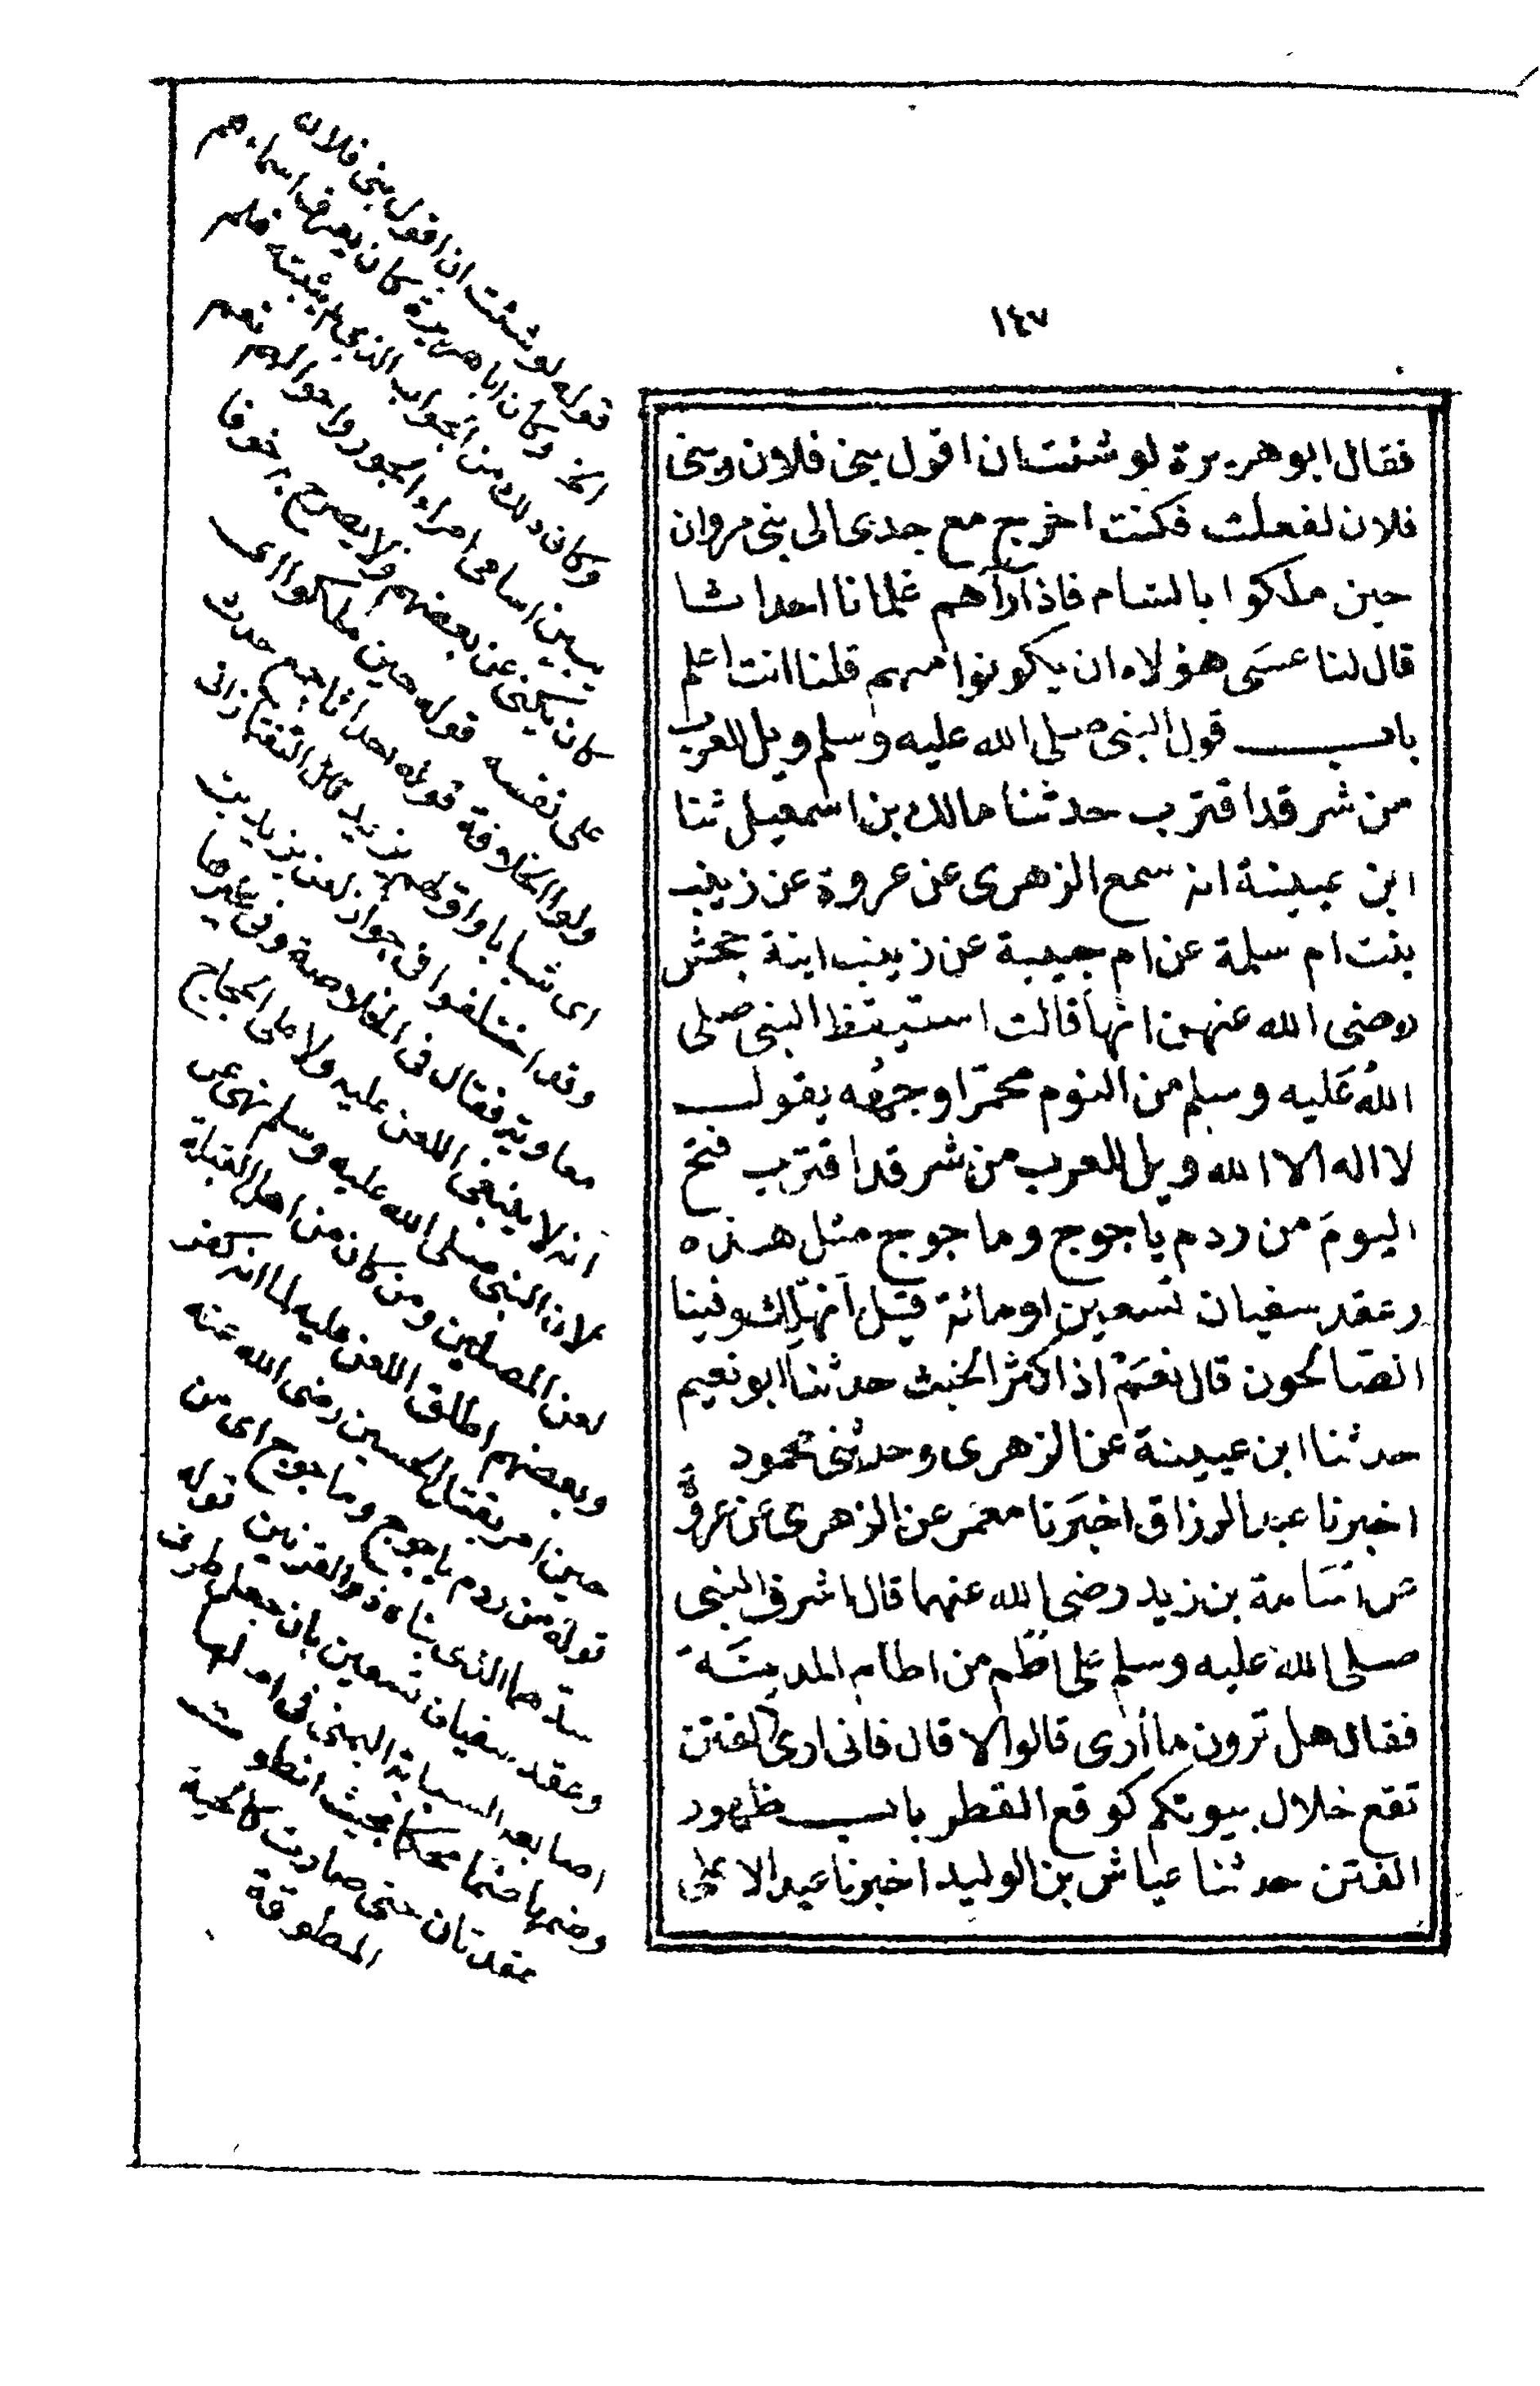 ١٤٧
فقال ابو هريرة لو شئت ان اقول بنى فلان وبنى
فلان لفعلت فكنت اخرج مع جدى الى بنى مروان
حين ملكوا بالشام فاذا رآهم غلمانا احداثا
قال لنا عسى هؤلاء ان يكونوا منهم قلنا انت اعلم
باب قول النبى صلى الله عليه وسلم ويل للعرب
من شر قد اقترب حدثنا مالك بن اسمعيل ثنا
ابن عيينة انه سمع الزهرى عن عروة عن زينب
بنت ام سلمة عن ام حبيبة عن زينب ابنة جحش
رضى الله عنهن انها قالت استيقظ النبى صلى
الله عليه وسلم من النوم محمرا وجهه يقول
لا اله الا الله ويل للعرب من شر قد اقترب فتح
اليوم من ردم ياجوج وماجوج مثل هذه
وعقد سفيان تسعين او مائة قيل انهلك وفينا
الصالحون قال نعم اذا كثر الخبث حدثنا ابو نعيم
حدثنا ابن عيينة عن الزهرى وحدثنى محمود
اخبرنا عبد الرزاق اخبرنا معمر عن الزهرى عن عروة
عن اسامة بن زيد رضى الله عنهما قال اشرف النبى
صلى الله عليه وسلم على اطم من اطام المدينة
فقال هل ترون ما أرى قالوا لا قال فانى ارى الفتن
تقع خلال بيوتكم كوقع القطر باب ظهور
الفتن حدثنا عياش بن الوليد اخبرنا عبد الاعلى
قوله لو شئت ان اقول بنى فلان
الخ وكان ابا هريرة كان يعرف اسماءهم
وكان ذلك من الجواب الذى لم يثبته فلم
يبين اسامى امراء الجور واحوالهم نعم
كان يكنى عن بعضهم ولا يصرح به خوفا
على نفسه قوله حين ملكوا اى
ولوا الخلافة قوله احداثا جمع حدث
اى شبابا واولهم يزيد قال التفتازانى
وقد اختلفوا فى جواز لعن يزيد بن
معاوية فقال فى الخلاصة وفى غيرها
انه لا ينبغى اللعن عليه ولا على الحجاج
لان النبى صلى الله عليه وسلم نهى عن
لعن المصلين ومن كان من اهل القبلة
وبعضهم اطلق اللعن عليه لما انه كفر
حين امر بقتل الحسين رضى الله عنه
قوله من ردم ياجوج وماجوج اى من
سدهما الذى بناه ذو القرنين قوله
وعقد سفيان تسعين بان جعل طرف
اصابعه السبابة اليمنى فى اصلها
وضمها ضما محكما بحيث انطوت
عقدتان حتى صارت كالحية
المطوقة